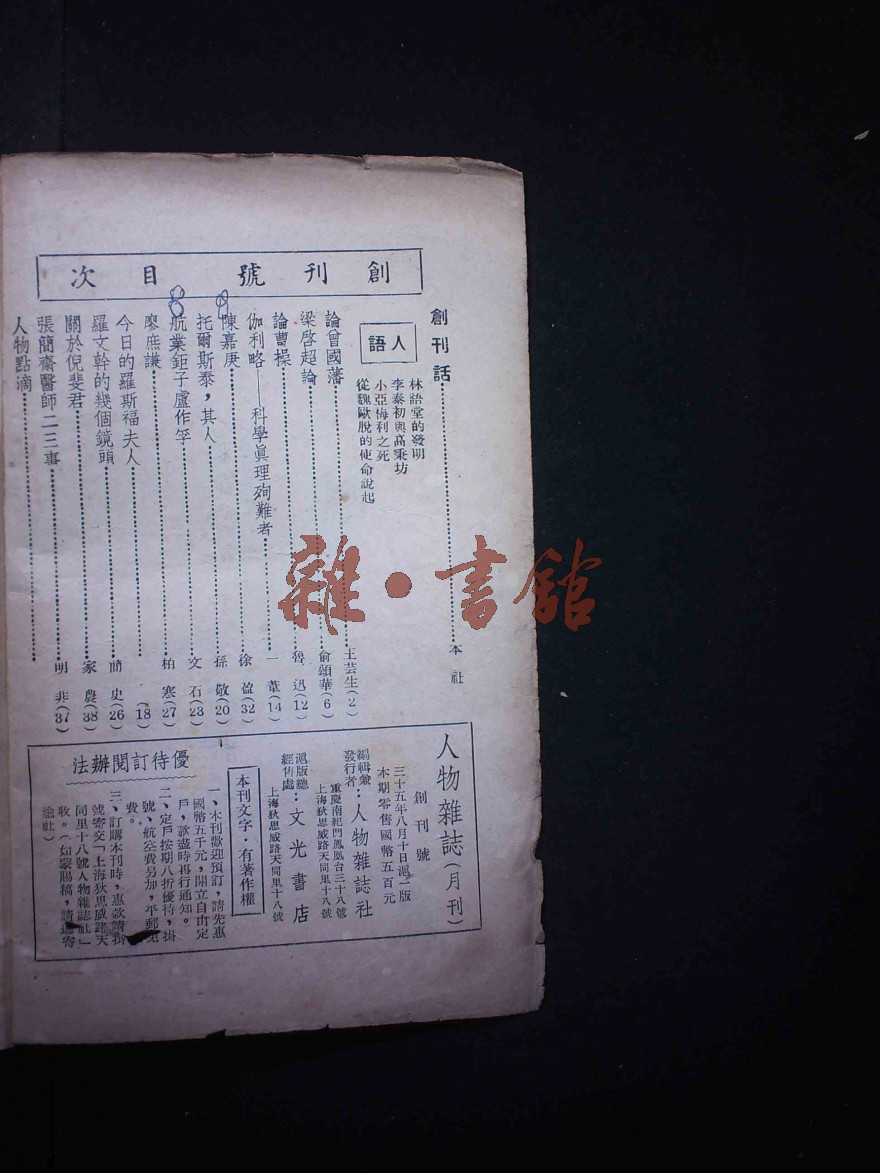 創刊號 目次
創刊話 本社
人語
林語堂的發明
李秦初與高秉坊
小亞梅利之死
從魏歐脫的使命說起
論曾國藩 王芸生(2)
梁啓超論 俞頌華(6)
論曹操 魯迅(12)
伽利略——科學眞理殉難者 一葦(14)
陳嘉庚 徐盈(32)
托爾斯泰，其人 孫敬(20)
航業鉅子盧作孚 文石(23)
廖庶謙 柏寒(27)
今日的羅斯福夫人 (18)
羅文幹的幾個鏡頭 簡史(26)
關於倪斐君 家農(38)
張簡齋醫師二三事 明非(37)
人物點滴
人物雜誌(月刊)
創刊號
三十五年八月十日滬一版
本期零售國幣五百元
編輯兼發行者：人物雜誌社
重慶南紀門鳳凰台三十八號
上海狄思威路天同里十八號
滬版總經售處：文光書店
上海狄思威路天同里十八號
本刊文字・有著作權
優待訂閱辦法
一、本刊歡迎預訂，請先惠
國幣五千元，開立自由定
戶，款盡時再行通知。
二、定戶按期八折優待，掛
號、航空費另加，平郵免
費。
三、訂購本刊時，惠款請掛
號寄交「上海狄思威路天
同里十八號人物雜誌社」
收。(如蒙賜稿，請逕寄
渝社)
雜・書館